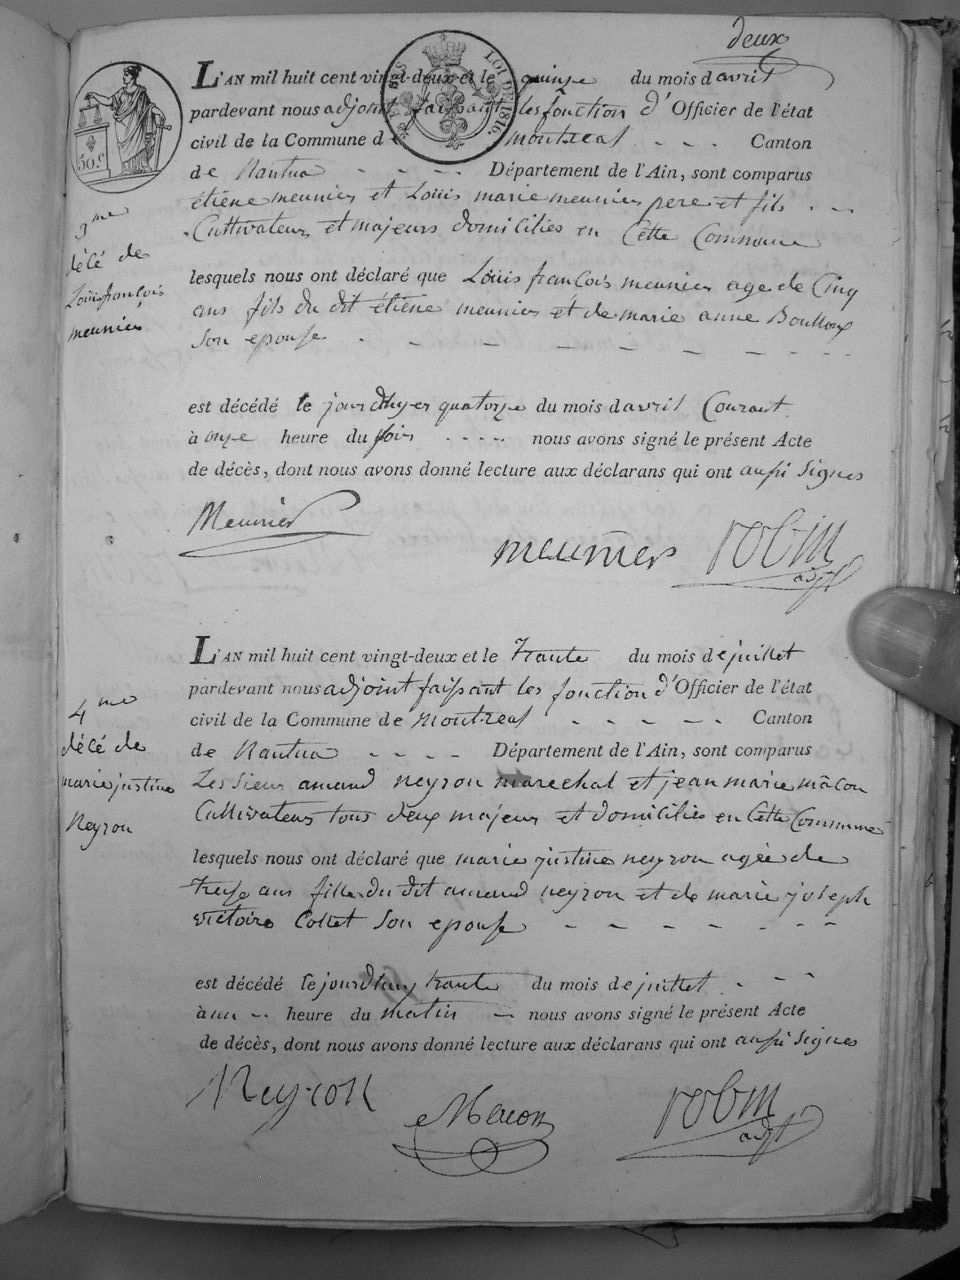 deux
L'AN mil huit cent vingt-deux et le quinze du mois d'avril
pardevant nous adjoint faisant les fonction d'Officier de l'état
civil de la Commune de montreal - - - Canton
de Nantua - - - - Département de l'Ain, sont comparus
étiene meunier et Louis marie meunier pere et fils - -
Cultivateurs et majeurs domiciliés en Cette Commune
lesquels nous ont déclaré que Louis françois meunier age de Cinq
ans fils du dit étiene meunier et de marie anne Boulloux
son epouse - - - - - - - - - -
est décédé le jour d'huyer quatorze du mois d'avril Courant
à onze heure du soir - - - - nous avons signé le présent Acte
de décès, dont nous avons donné lecture aux déclarans qui ont aussi signes
Meunier
meunier robin
adjt
3me
décé de
Louis françois
meunier
50 c
LOI DE 1816.
L'AN mil huit cent vingt-deux et le trante du mois de juillet
pardevant nous adjoint faissant les fonction d'Officier de l'état
civil de la Commune de Montreal - - - - - Canton
de Nantua - - - - Département de l'Ain, sont comparus
Les sieur amand neyron marechal et jean marie mâcon
Cultivateurs tous deux majeur et domiciliés en Cette Commune
lesquels nous ont déclaré que marie justine neyron agée de
treize ans fille du dit amand neyron et de marie joseph
victoire Collet son epouse - - - - - - -
est décédé le jourd'huy trante du mois de juillet - - -
à un - - heure du matin - nous avons signé le présent Acte
de décès, dont nous avons donné lecture aux déclarans qui ont aussi signes
Neyron
Macon robin
adjt
4me
décé de
marie justine
Neyron